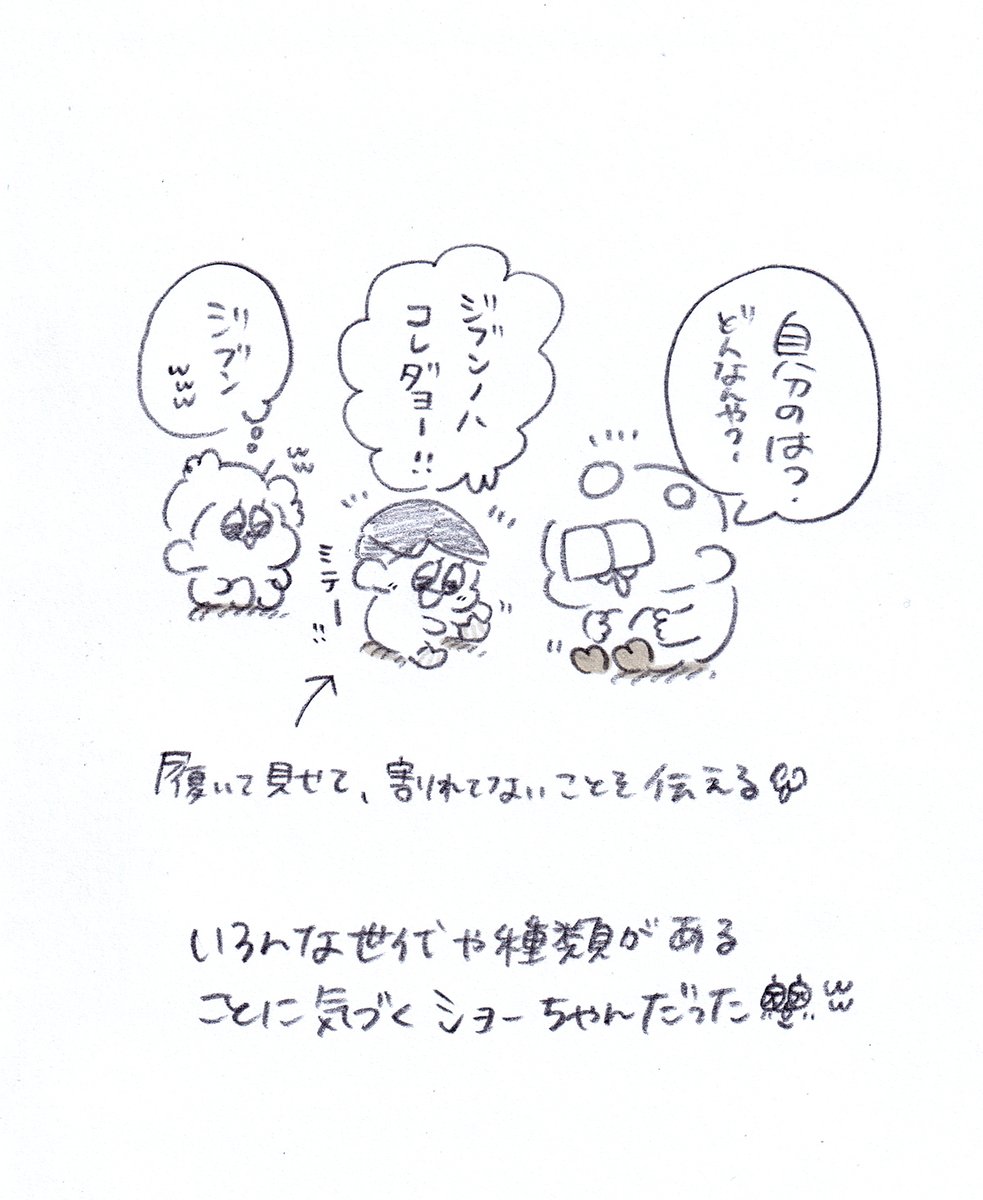 自分のは？
どんなやつ？
ジブンノハ
コレダヨー!!
ジブン
ミテー!!
履いて見せて、割れてないことを伝える
いろんな世代や種類がある
ことに気づくショーちゃんだった